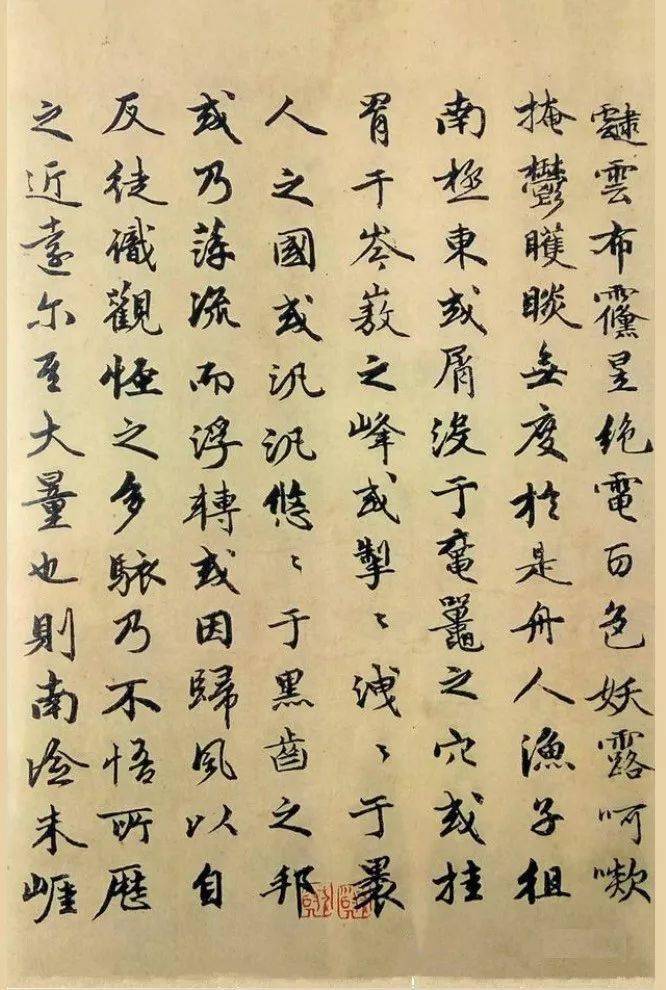 靆雲布䨴昱绝電百色妖露呵嗽
掩鬱矆睒無度於是舟人漁子徂
南極東或屑没于黿鼉之穴或挂
罥于岑嶅之峰或掣〻洩〻于裸
人之國或汎汎悠〻于黑齒之邦
或乃萍流而浮轉或因歸風以自
反徒識觀怪之多駭乃不悟所歷
之近遠尔其大量也則南澰朱崖